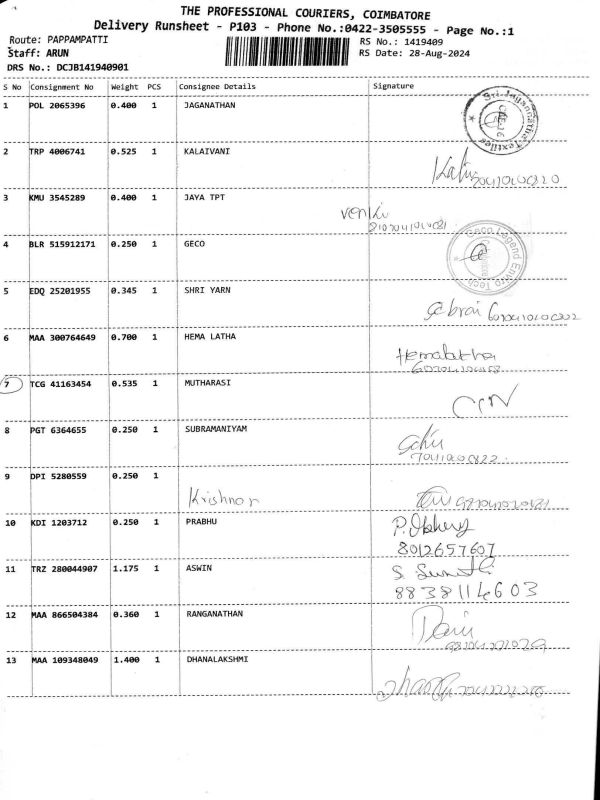 THE PROFESSIONAL COURIERS, COIMBATORE
Delivery Runsheet - P103 - Phone No.:0422-3505555 - Page No.:1
Route: PAPPAMPATTI RS No.: 1419409
Staff: ARUN RS Date: 28-Aug-2024
DRS No.: DCJB141940901
S No Consignment No Weight PCS Consignee Details Signature
1 POL 2065396 0.400 1 JAGANATHAN
Sri Jagannatha Textiles
2 TRP 4006741 0.525 1 KALAIVANI
3 KMU 3545289 0.400 1 JAYA TPT
4 BLR 515912171 0.250 1 GECO
Geco Legend Enviro Tech
5 EDQ 25201955 0.345 1 SHRI YARN
6 MAA 300764649 0.700 1 HEMA LATHA
Hemalatha
7 TCG 41163454 0.535 1 MUTHARASI
8 PGT 6364655 0.250 1 SUBRAMANIYAM
9 DPI 5280559 0.250 1
Krishnan
10 KDI 1203712 0.250 1 PRABHU
8012657607
11 TRZ 280044907 1.175 1 ASWIN
8838114603
12 MAA 866504384 0.360 1 RANGANATHAN
13 MAA 109348049 1.400 1 DHANALAKSHMI